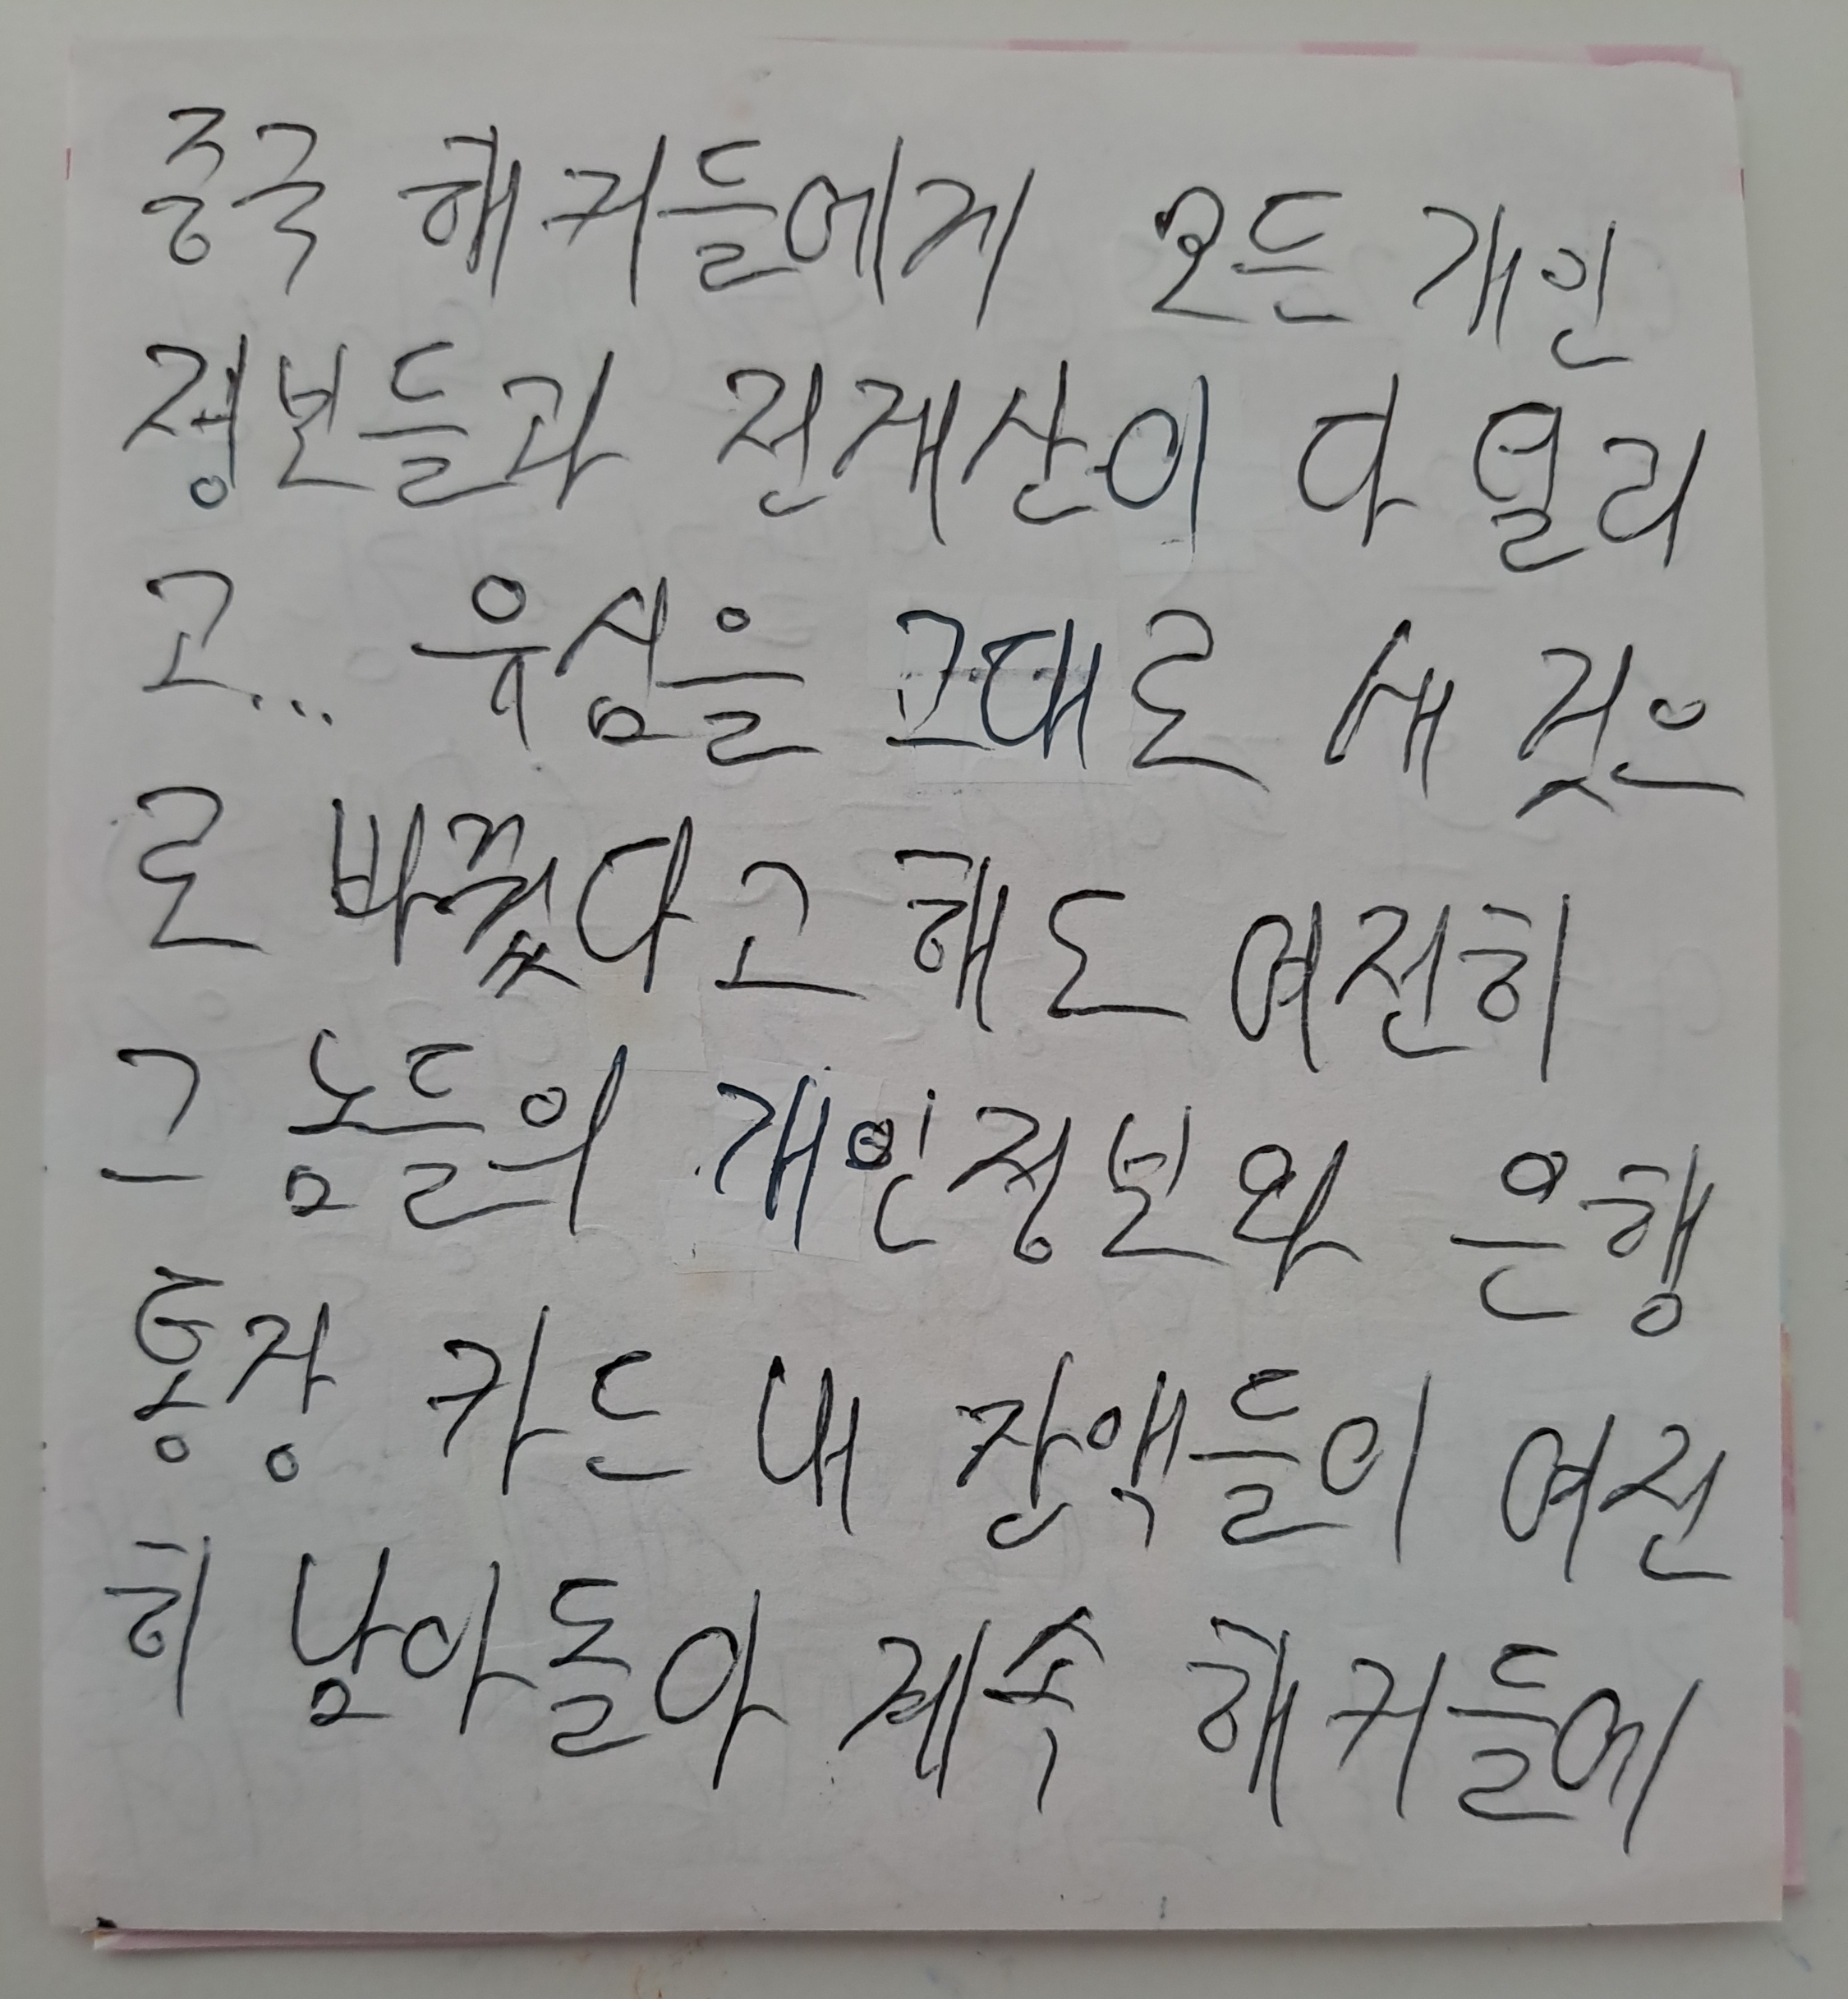 중국 해커들에게 모든 개인
정보들과 전재산이 다 열리
고... 유심을 그대로 새 것으
로 바꿨다고 해도 여전히
그 놈들의 개인정보와 은행
통장 카드 내 잔액들이 여전
히 남아돌아 계속 해커들에